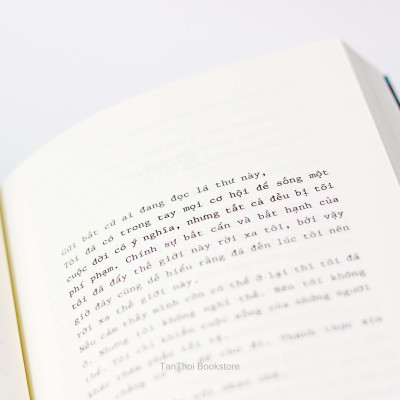 Gửi bất cứ ai đang đọc lá thư này,
Tôi đã có trong tay mọi cơ hội để sống một
cuộc đời có ý nghĩa, nhưng tất cả đều bị tôi
phí phạm. Chính sự bất cẩn và bất hạnh của
tôi đã đẩy thế giới này rời xa tôi, bởi vậy
giờ đây cũng dễ hiểu rằng đã đến lúc tôi nên
rời xa thế giới này.
Nếu cảm thấy mình còn có thể ở lại thì tôi đã
ở. Nhưng tôi không nghĩ thế. Nếu tôi không
thể. Tôi chỉ khiến cuộc sống của những người
khác thêm phần tồi tệ.
TanThoi Bookstore